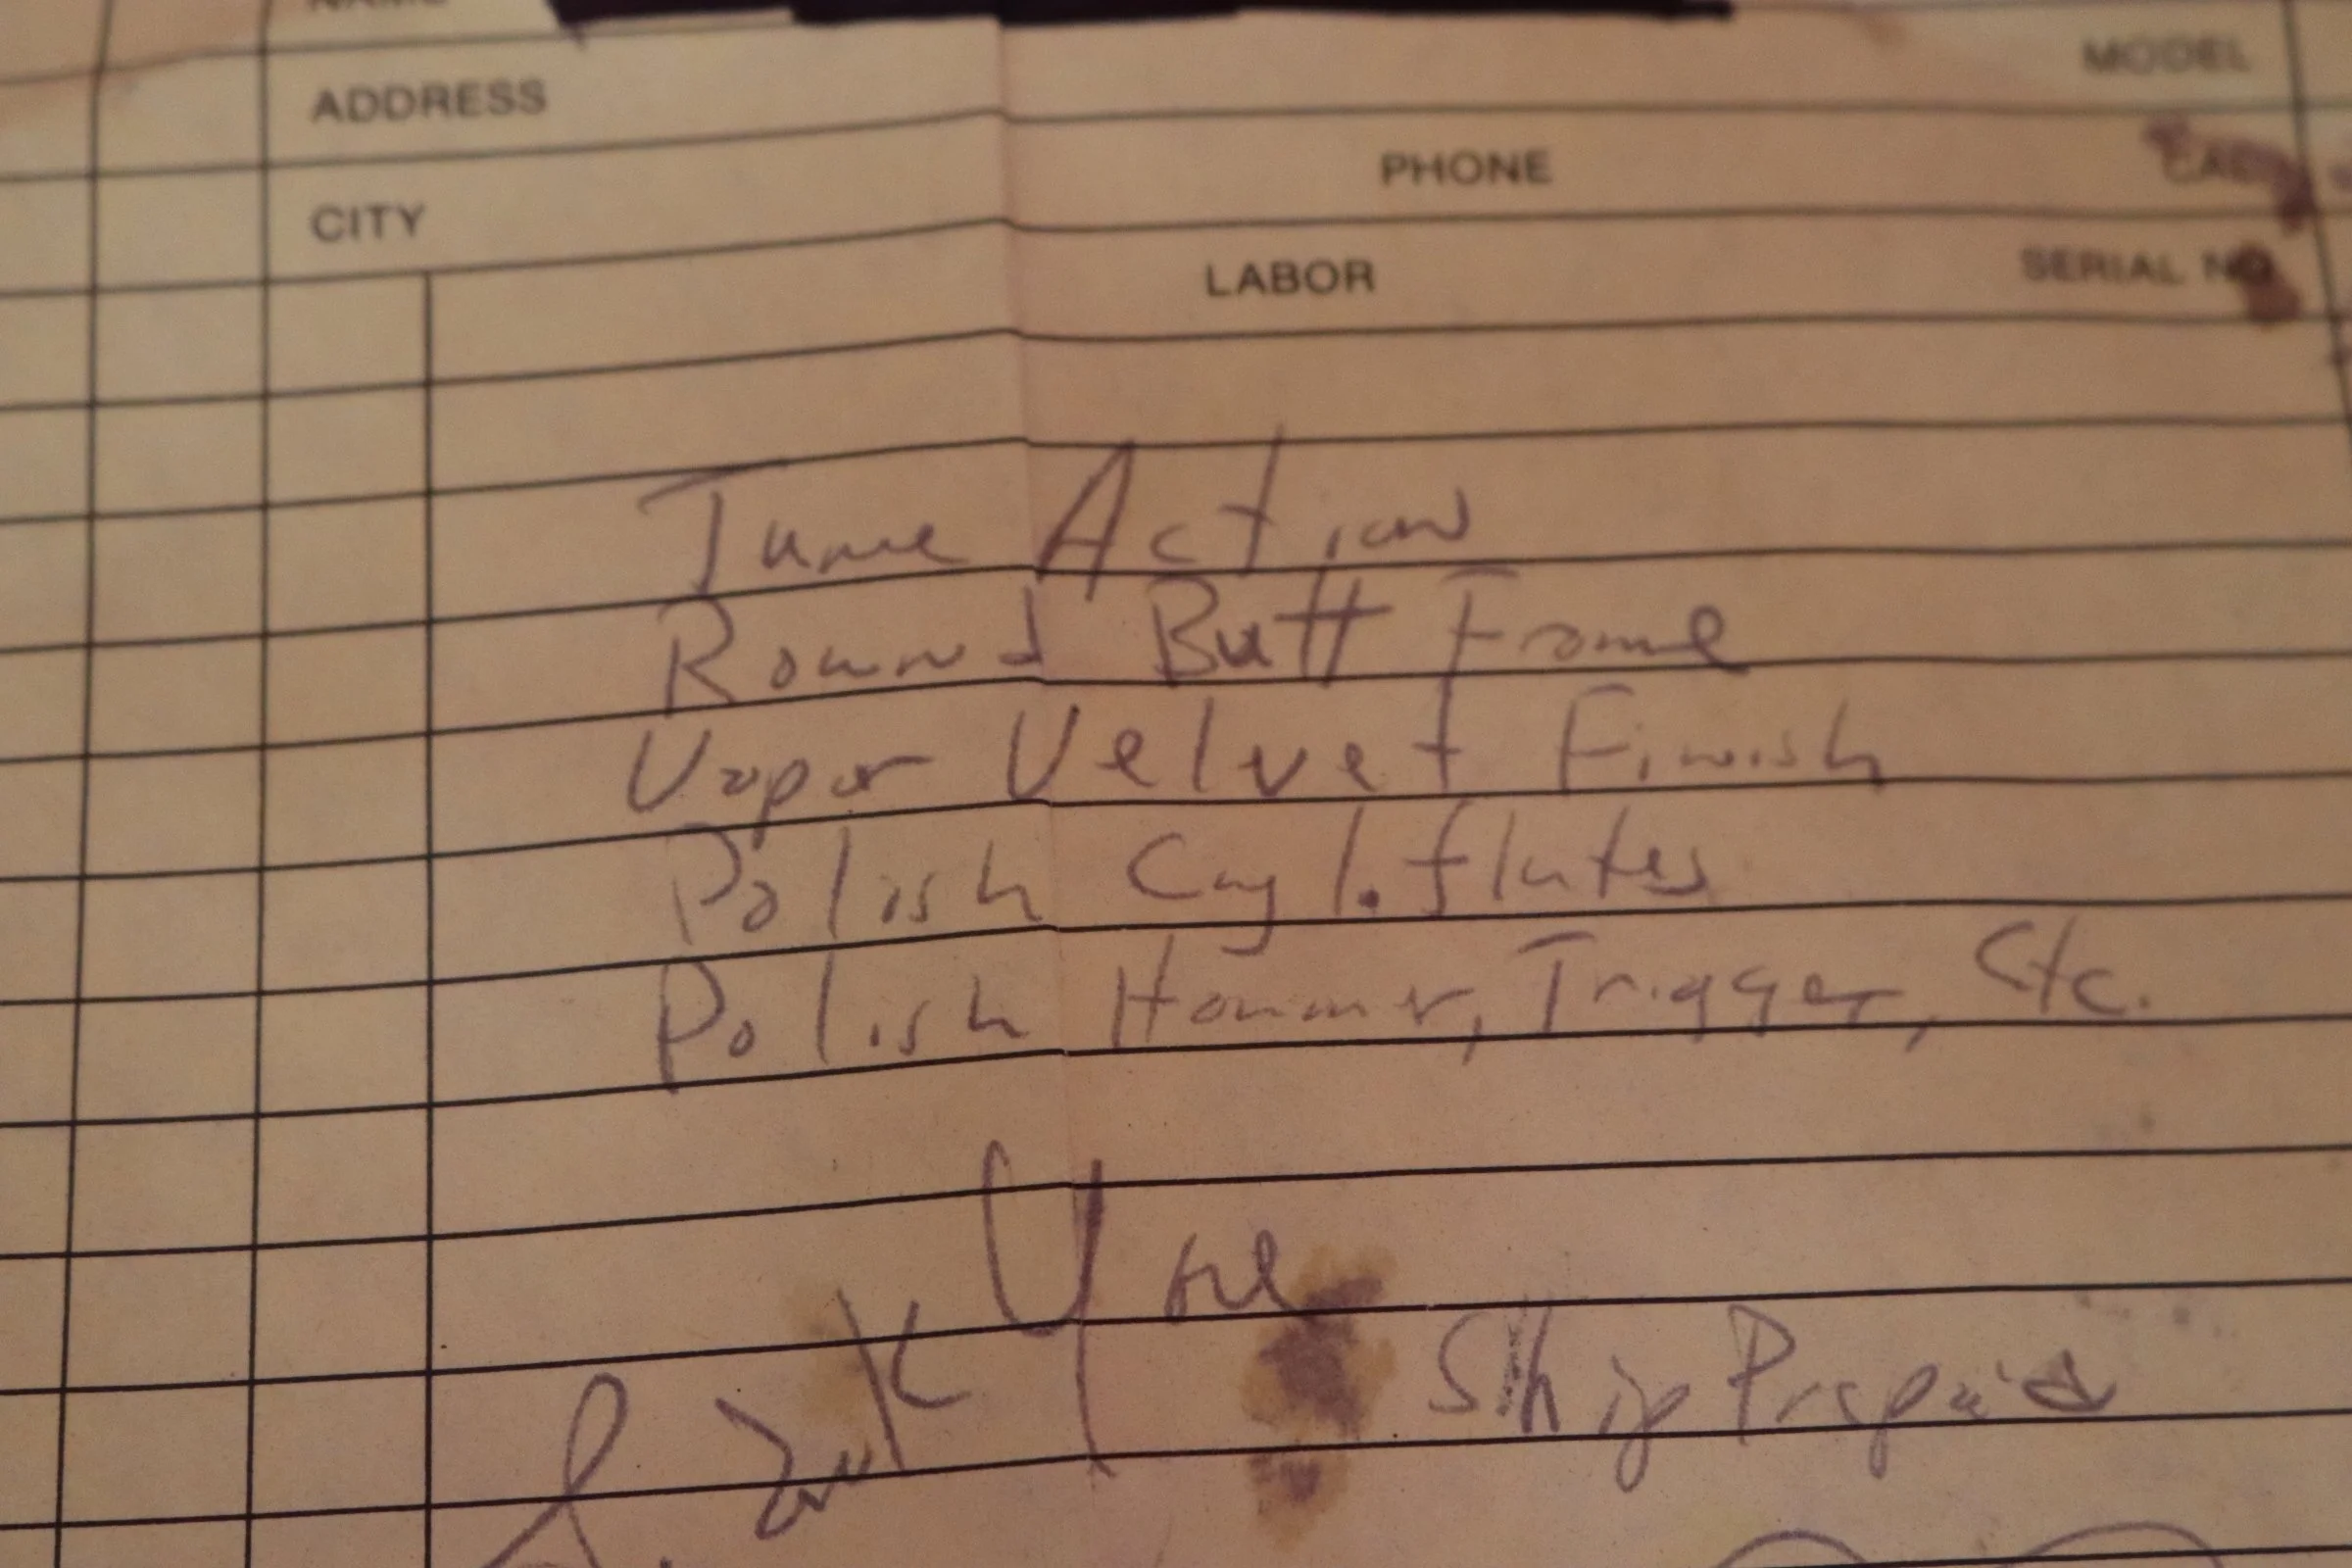 NAME
ADDRESS MODEL
CITY PHONE
LABOR SERIAL NO.
Tune Action
Round Butt Frame
Vapor Velvet Finish
Polish Cyl. flutes
Polish Hammer, Trigger, Etc.
Ship Prepaid